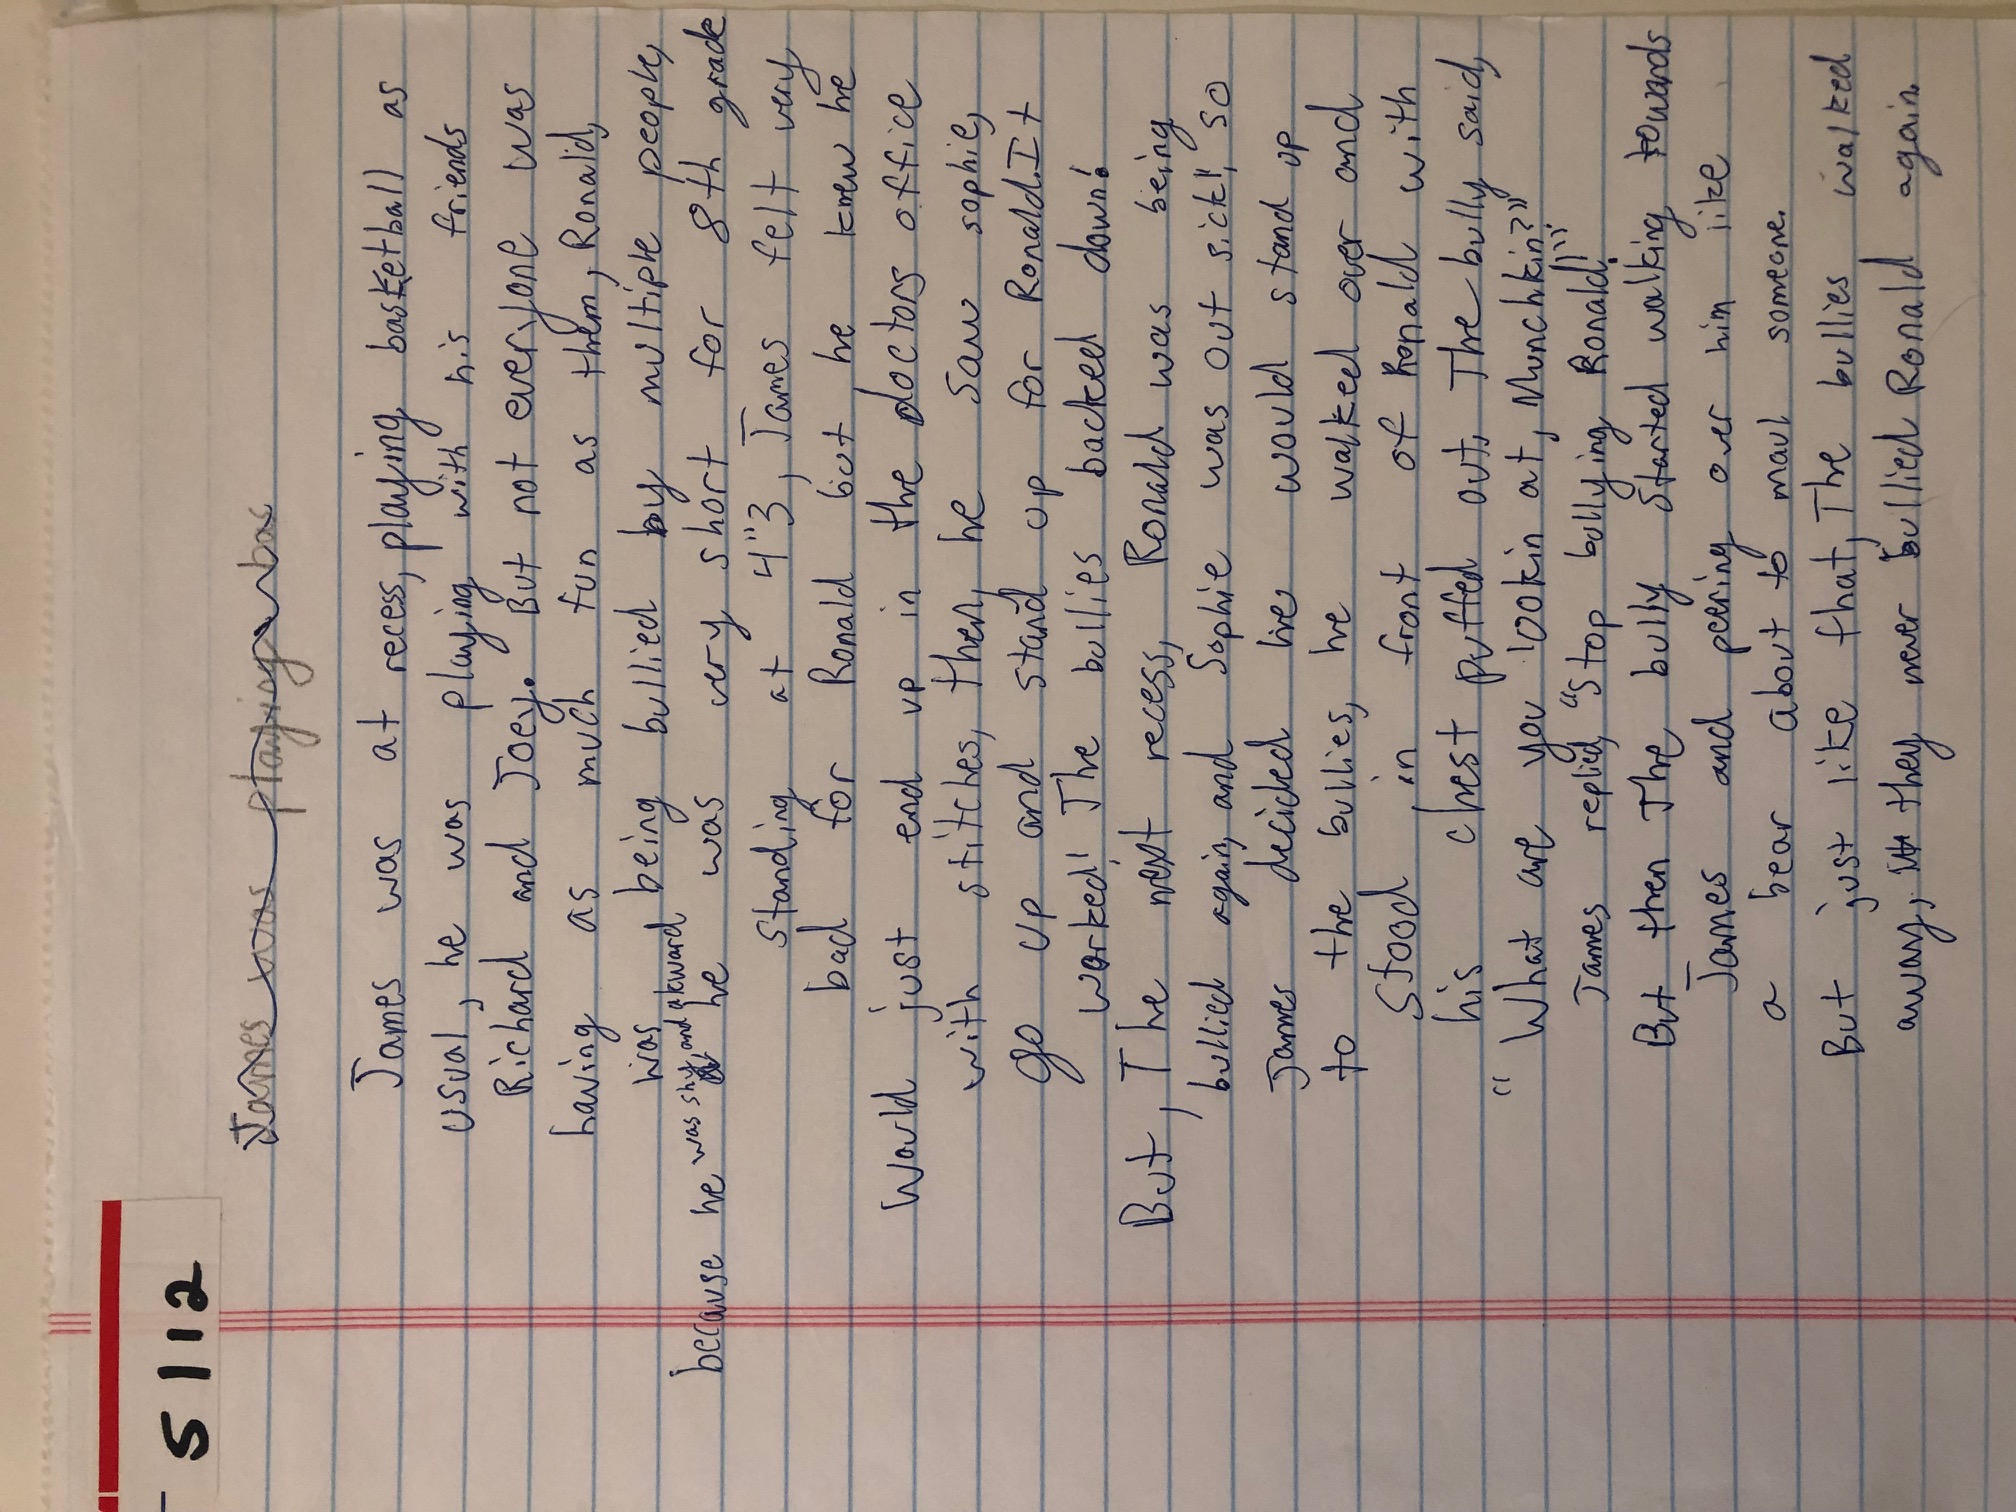 5/12
James was playing bas
James was at recess, playing basketball as
usual, he was playing with his friends
Richard and Joey. But not everyone was
having as much fun as them, Ronald,
was being bullied by multiple people,
because he was shy, and akward he was very short for 8th grade
standing at 4"3, James felt very
bad for Ronald but, he knew he
would just end up in the doctors office
with stitches, then, he saw sophie,
go up and stand up for Ronald. It
worked! The bullies backed down!
But, The next recess, Ronald was being
bullied again, and Sophie was out sick!, so
James decided he would stand up
to the bullies, he walked over and
stood, in front of Ronald with
his chest puffed out, The bully said,
"What are you lookin at, Munchkin?"
James replied, "Stop bullying Ronald!"
But then The bully started walking towards
James and peering over him like
a bear about to maul someone.
But just like that, The bullies walked
away, they never bullied Ronald again.